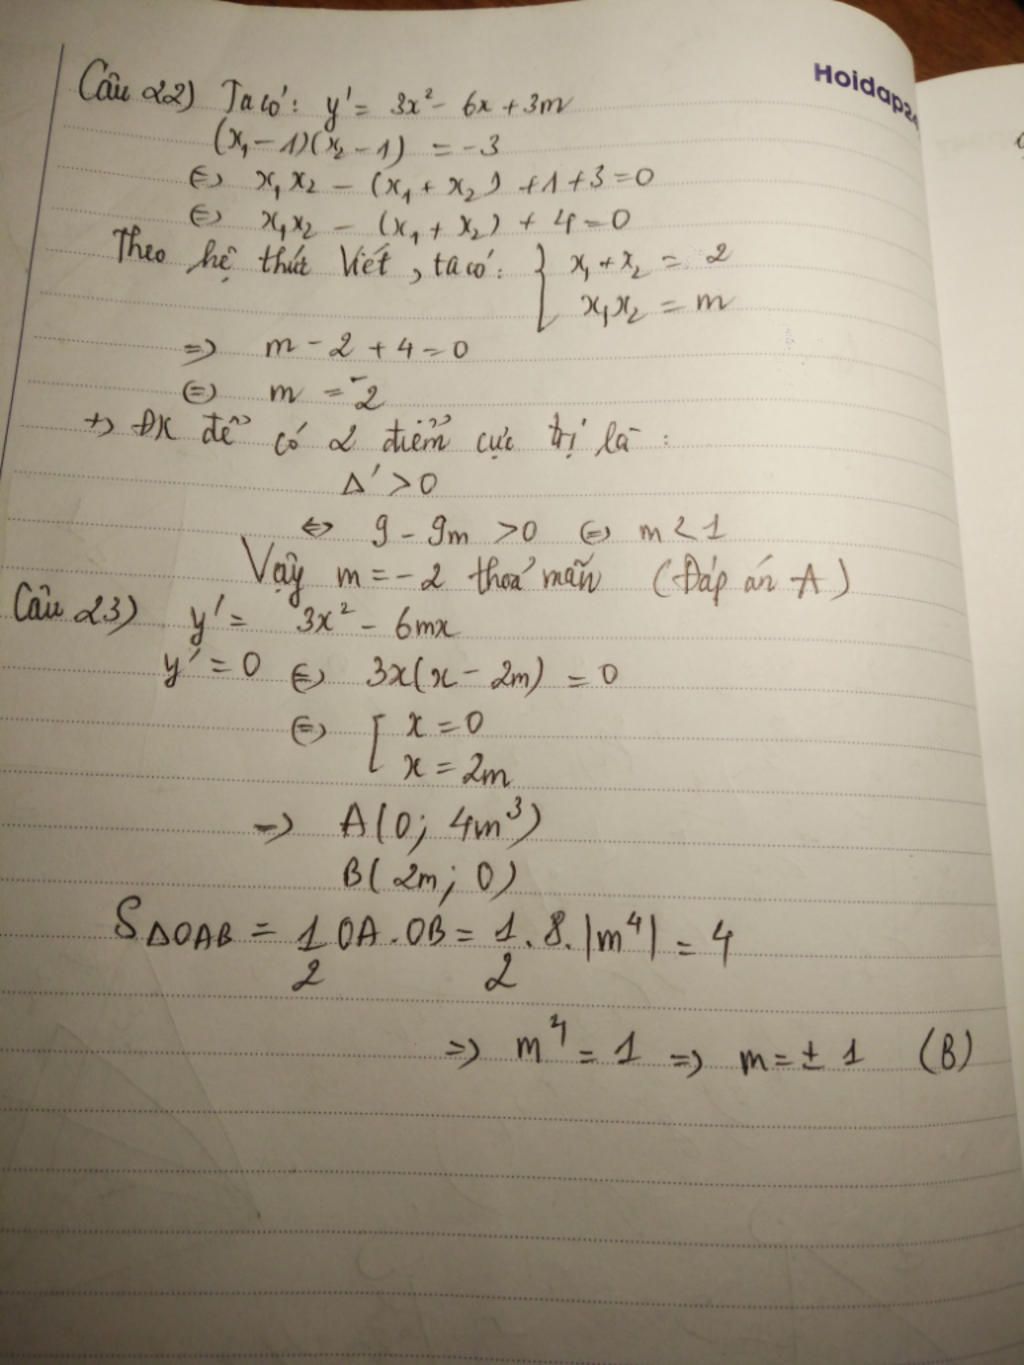 Hoidap24
Câu 22) Ta có: y' = 3x² - 6x + 3m
(x₁ - 1)(x₂ - 1) = -3
⇔ x₁x₂ - (x₁ + x₂) + 1 + 3 = 0
⇔ x₁x₂ - (x₁ + x₂) + 4 = 0
Theo hệ thức Viét, ta có: { x₁ + x₂ = 2
x₁x₂ = m
=> m - 2 + 4 = 0
⇔ m = -2
+> ĐK để có 2 điểm cực trị là :
Δ' > 0
⇔ 9 - 9m > 0 ⇔ m < 1
Vậy m = -2 thoả mãn (Đáp án A)
Câu 23) y' = 3x² - 6mx
y' = 0 ⇔ 3x(x - 2m) = 0
⇔ [ x = 0
x = 2m
=> A(0; 4m³)
B(2m; 0)
S△OAB = 1/2 OA.OB = 1/2 . 8. |m⁴| = 4
=> m⁴ = 1 => m = ± 1 (B)